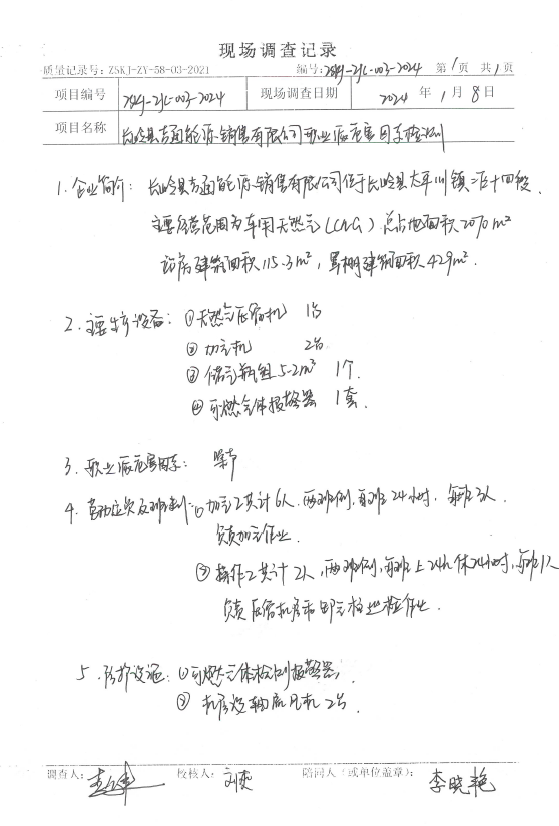 现场调查记录
质量记录号：ZSKJ-ZY-58-03-2021 编号：ZSKJ-ZJC-003-2024 第1页 共1页
项目编号 ZSKJ-ZJC-003-2024 现场调查日期 2024年1月8日
项目名称 长岭县吉通能源销售有限公司职业病危害因素检测
1. 企业简介：长岭县吉通能源销售有限公司位于长岭县太平川镇
主要经营范围为车用天然气（CNG）总占地面积2070m²
站房建筑面积115.3m²，罩棚建筑面积429m².
2. 主要生产设备：①天然气压缩机 1台
②加气机 2台
③储气瓶组 5-2m³ 1个.
④可燃气体报警器 1套.
3. 职业病危害因素：噪声
4. 劳动定员及班制：①加气工共计6人. 两班制，每班24小时，每班3人.
负责加气作业.
②操作工共计2人，两班制，每班上24h休24小时，每班1人
负责压缩机房和巡检作业.
5. 防护设施：①可燃气体检测报警器；
②机房设轴流风机2台.
调查人： 校核人：刘奕 陪同人（或单位盖章）：李晓艳